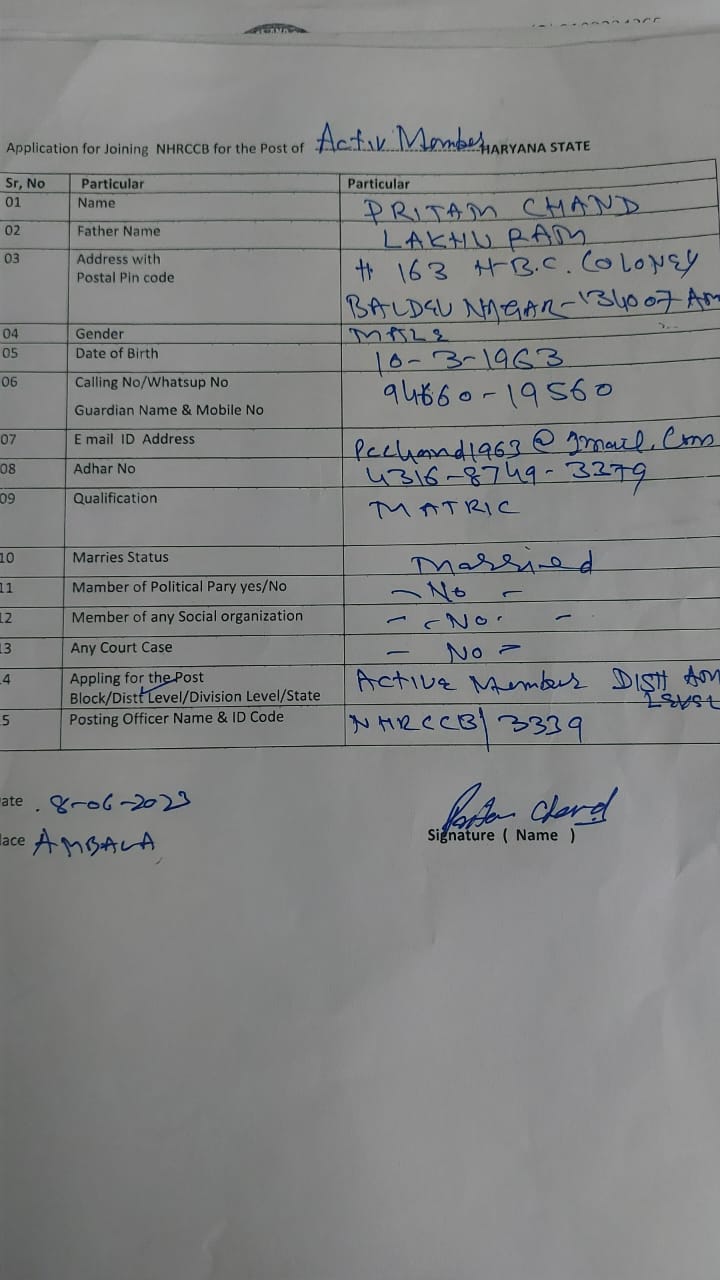 Application for Joining NHRCCB for the Post of Activ Member HARYANA STATE
Sr, No Particular Particular
01 Name PRITAM CHAND
02 Father Name LAKHU RAM
03 Address with # 163 H.B.C. COLONEY
Postal Pin code
BALDEV NAGAR-134007 AM
04 Gender MALE
05 Date of Birth 10-3-1963
06 Calling No/Whatsup No 94660-19560
Guardian Name & Mobile No
07 E mail ID Address pcchand1963@gmail.com
08 Adhar No 4316-8749-3379
09 Qualification MATRIC
10 Marries Status Married
11 Mamber of Political Pary yes/No - No -
12 Member of any Social organization - No. -
3 Any Court Case - No -
4 Appling for the Post ACTIVE Member DISTT AM
Block/Distt Level/Division Level/State LEVEL
5 Posting Officer Name & ID Code NHRCCB/3339
ate . 8-06-2023
lace AMBALA
Pritam Chand
Signature ( Name )